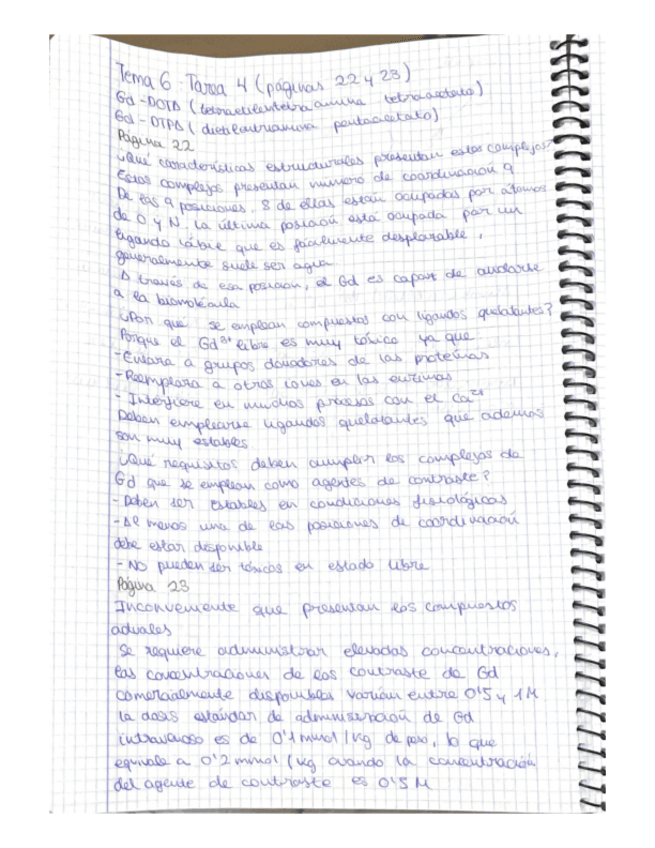 Tema 6 - Tarea 4 (páginas 22 y 23)
Gd-DOTA (tetraetilentetraamina tetraacetato)
Gd-DTPA (dietilentriamina pentaacetato)
Página 22
¿Qué características estructurales presentan estos complejos?
Estos complejos presentan número de coordinación 9
De las 9 posiciones, 8 de ellas están ocupadas por átomos
de O y N. La última posición está ocupada por un
ligando lábil que es fácilmente desplazable,
generalmente suele ser agua
A través de esa posición, el Gd es capaz de anclarse
a la biomolécula
¿Por qué se emplean compuestos con ligandos quelatantes?
Porque el Gd³⁺ libre es muy tóxico ya que
- Enlaza a grupos donadores de las proteínas
- Reemplaza a otros iones en las enzimas
- Interfiere en muchos procesos con el Ca²⁺
Deben emplearse ligandos quelatantes que además
son muy estables
¿Qué requisitos deben cumplir los complejos de
Gd que se emplean como agentes de contraste?
- Deben ser estables en condiciones fisiológicas
- Al menos una de las posiciones de coordinación
debe estar disponible
- No pueden ser tóxicos en estado libre
Página 23
Inconveniente que presentan los compuestos
actuales
Se requiere administrar elevadas concentraciones,
las concentraciones de los contraste de Gd
comercialmente disponibles varían entre 0'5 y 1M
La dosis estándar de administración de Gd
intravenoso es de 0'1 mmol/kg de peso, lo que
equivale a 0'2 mmol/kg cuando la concentración
del agente de contraste es 0'5 M